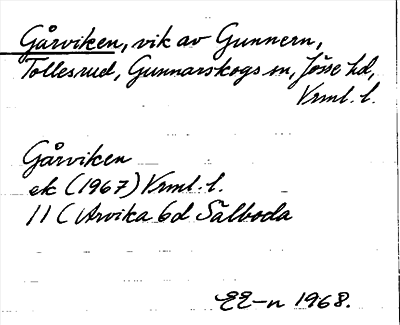 Gårviken, vik av Gunnern,
Tollesrud, Gunnarskogs sn, Jösse hd,
Vrml. l.
Gårviken
ek (1967) Vrml. l.
11 C Arvika 6d Sälboda
EE-n 1968.